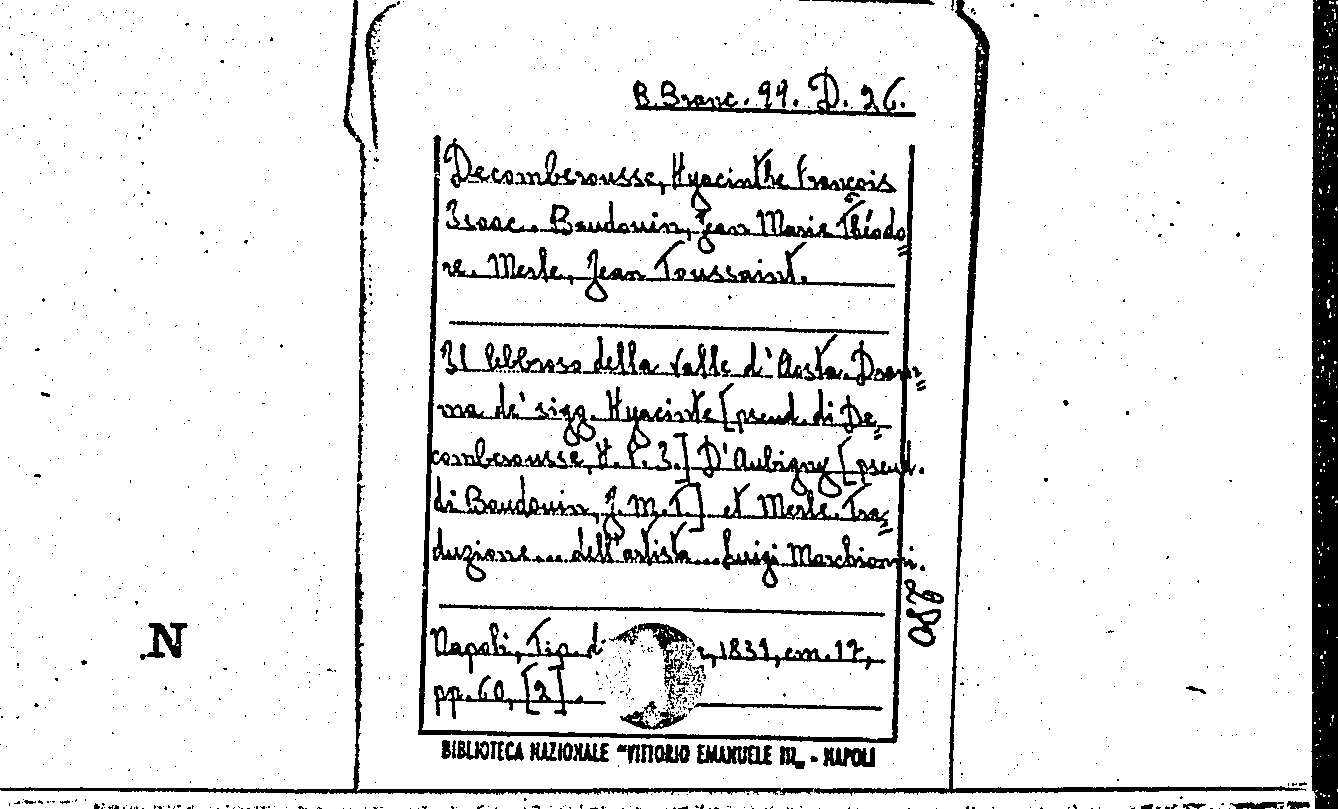 B. Branc. 99. D. 26.
Decomberousse, Hyacinthe François
Isaac.. Baudouin, Jean Marie Théodo=
re. Merle, Jean Toussaint.
Il lebbroso della Valle d'Aosta. Dram=
ma de' sigg. Hyacinte [pseud. di De=
comberousse, H. F. I.] D'Aubigny [pseud.
di Baudouin, J. M. T.] et Merle. Tra=
duzione... dell'artista... Luigi Marchionni.
280
Napoli, Tip. di 1831, cm. 17,
pp. 60, [2].
N
BIBLIOTECA NAZIONALE "VITTORIO EMANUELE III„ - NAPOLI